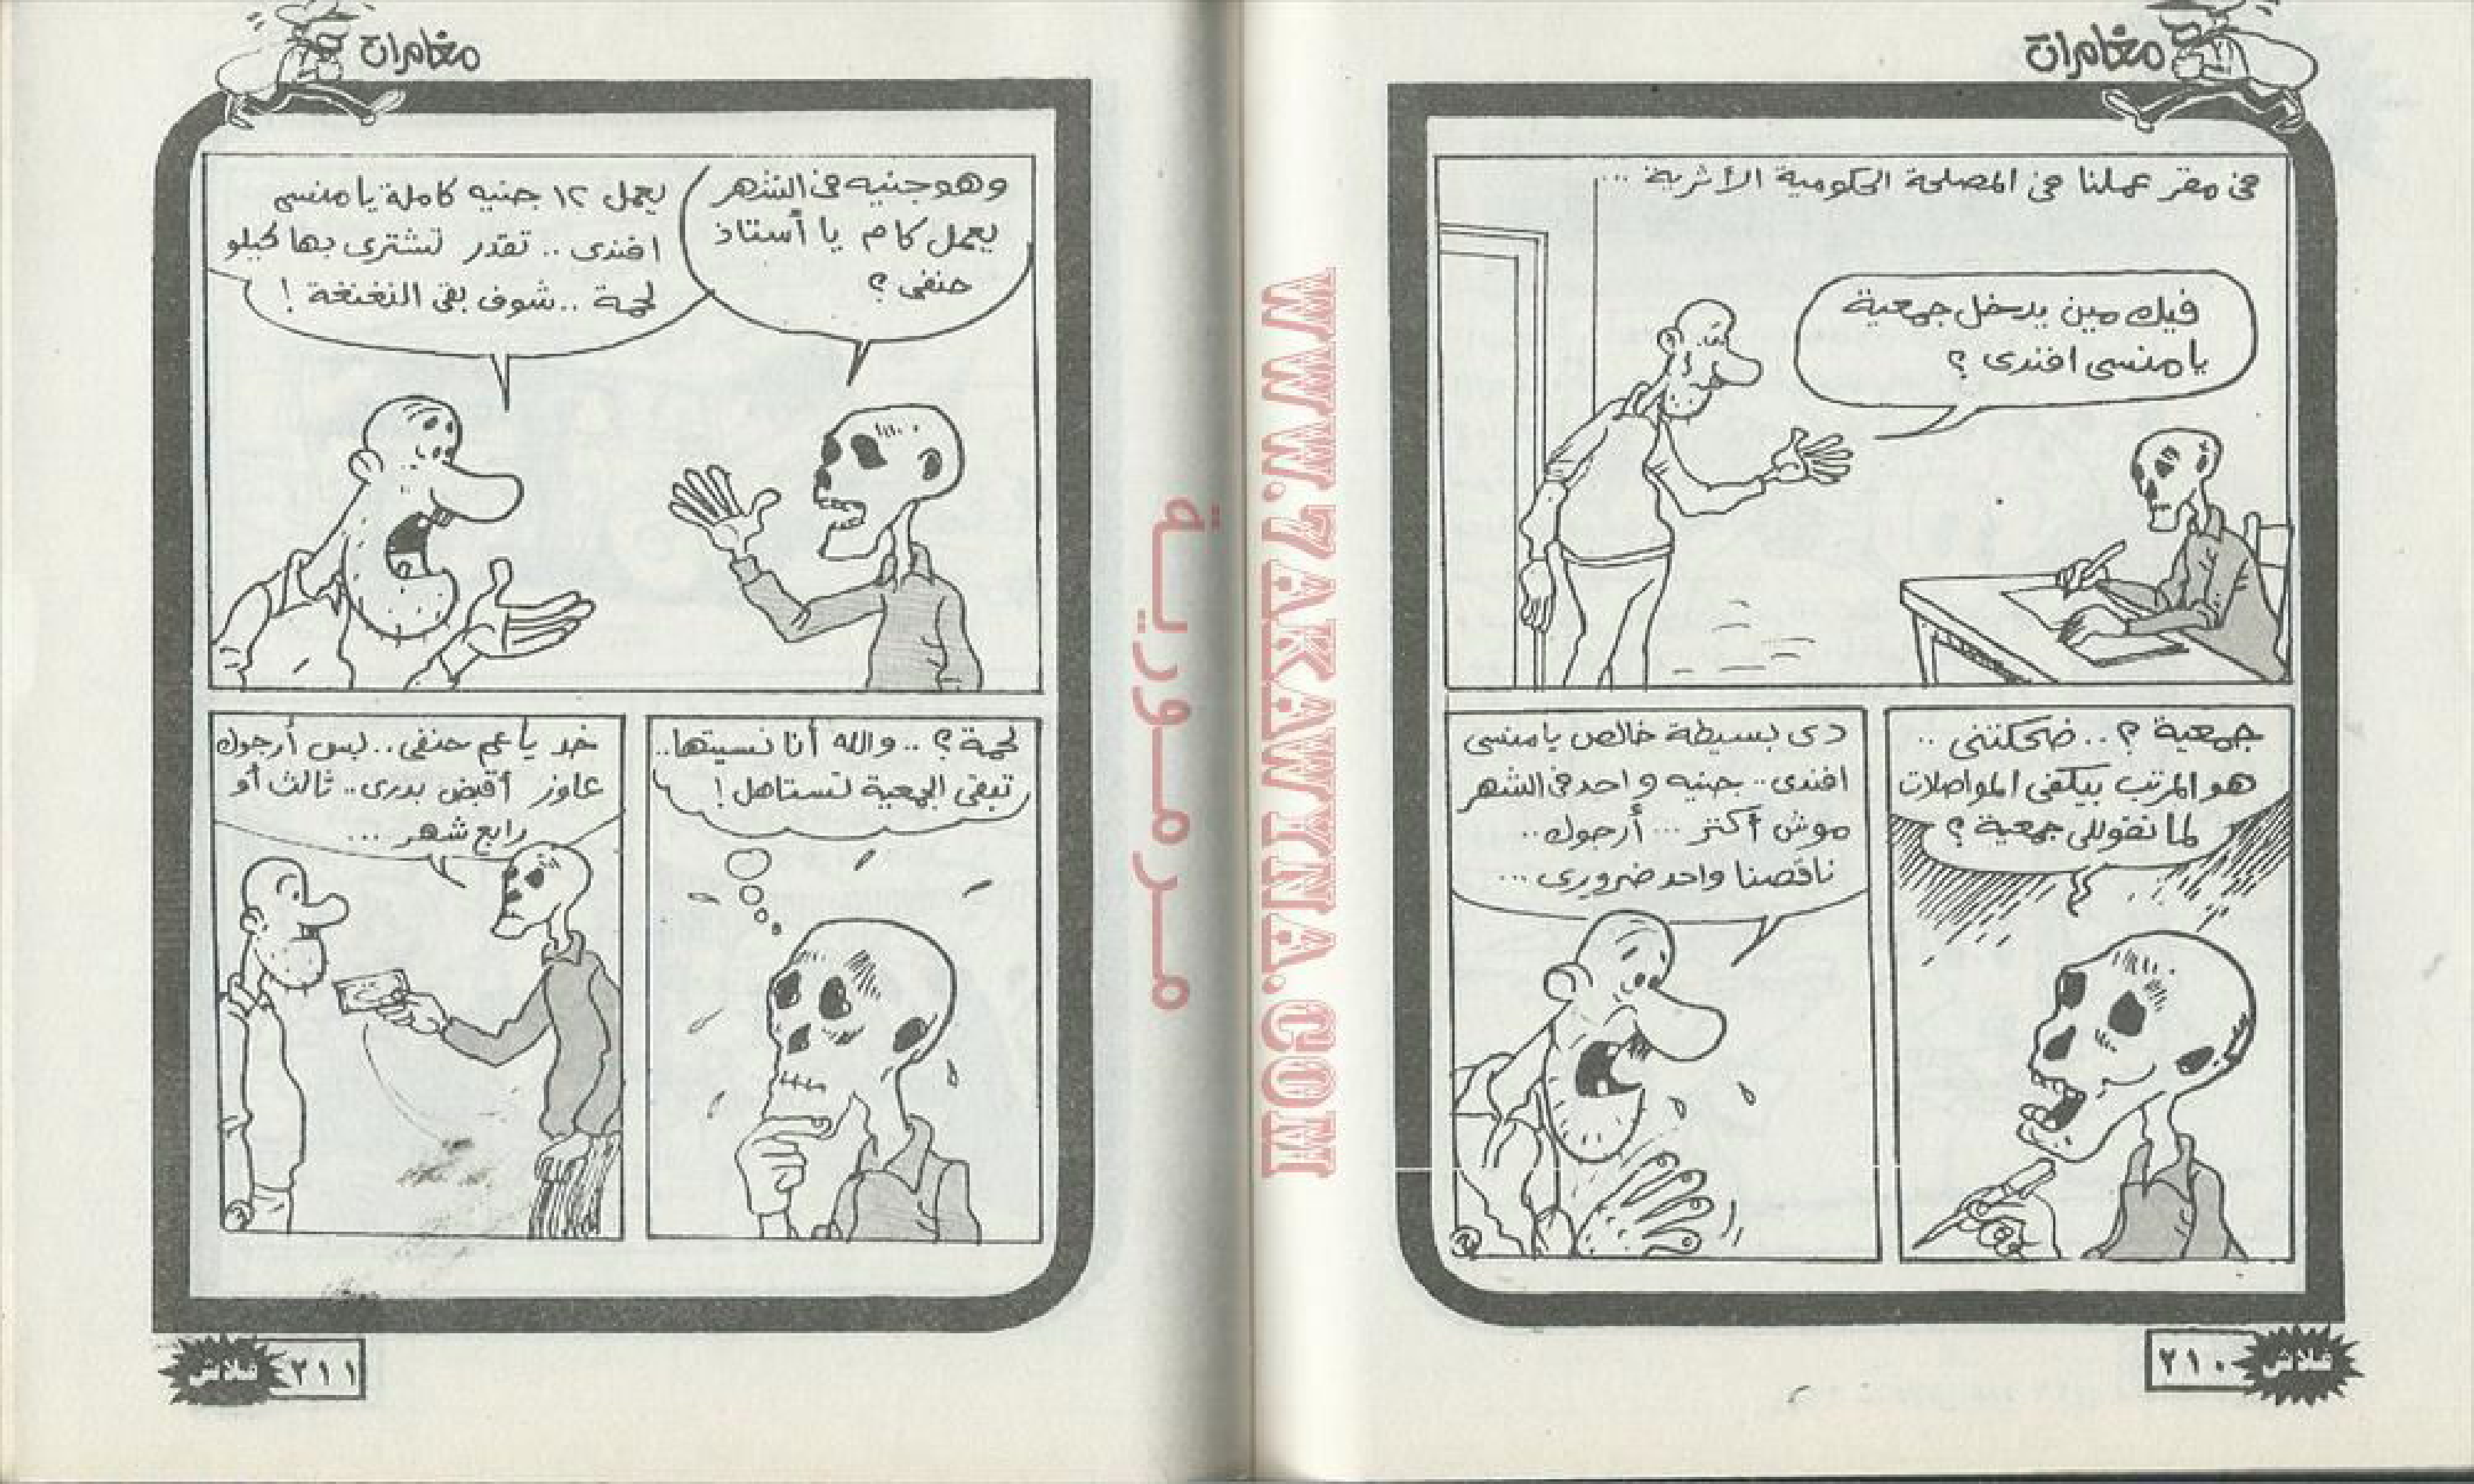 مغامرات
فى مقر عملنا فى المصلحة الحكومية الأثرية ...
فيك مين يدخل جمعية
يا منسى افندى ؟
جمعية ؟ .. ضحكتنى ..
هو المرتب بيكفى المواصلات
لما تقوللى جمعية ؟
دى بسيطة خالص يا منسى
افندى .. جنيه واحد فى الشهر
موش أكتر ... أرجوك ..
ناقصنا واحد ضرورى ...
٢١٠
فلاش
مغامرات
وهو جنيه فى الشهر
يعمل كام يا أستاذ
حنفى ؟
يعمل ١٢ جنيه كاملة يا منسى
افندى .. تقدر تشترى بها كيلو
لحمة .. شوف بقى النغنغة !
لحمة ؟ .. والله أنا نسيتها ..
تبقى الجمعية تستاهل !
خد يا عم حنفى .. بس أرجوك
عاوز أقبض بدرى .. ثالث أو
رابع شهر ...
٢١١
فلاش
WWW.7AKAWINA.COM
مرمورية